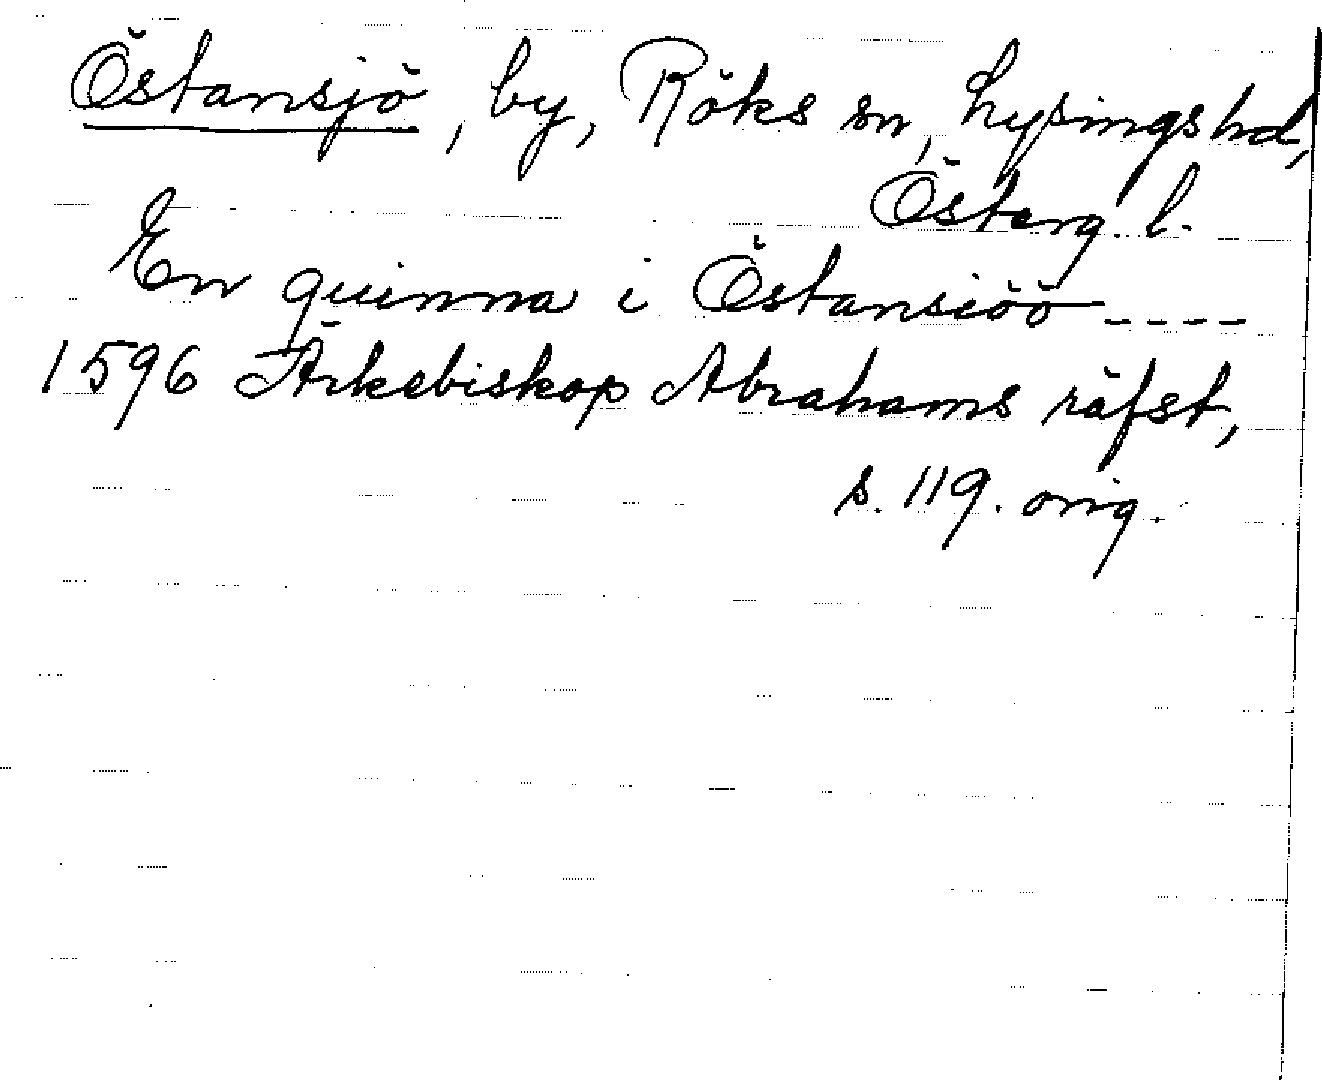 Östansjö, by, Röks sn, Lysings hd,
Österg. l.
En quinna i Östansiöö ----
1596 Ärkebiskop Abrahams räfst,
s. 119. orig.